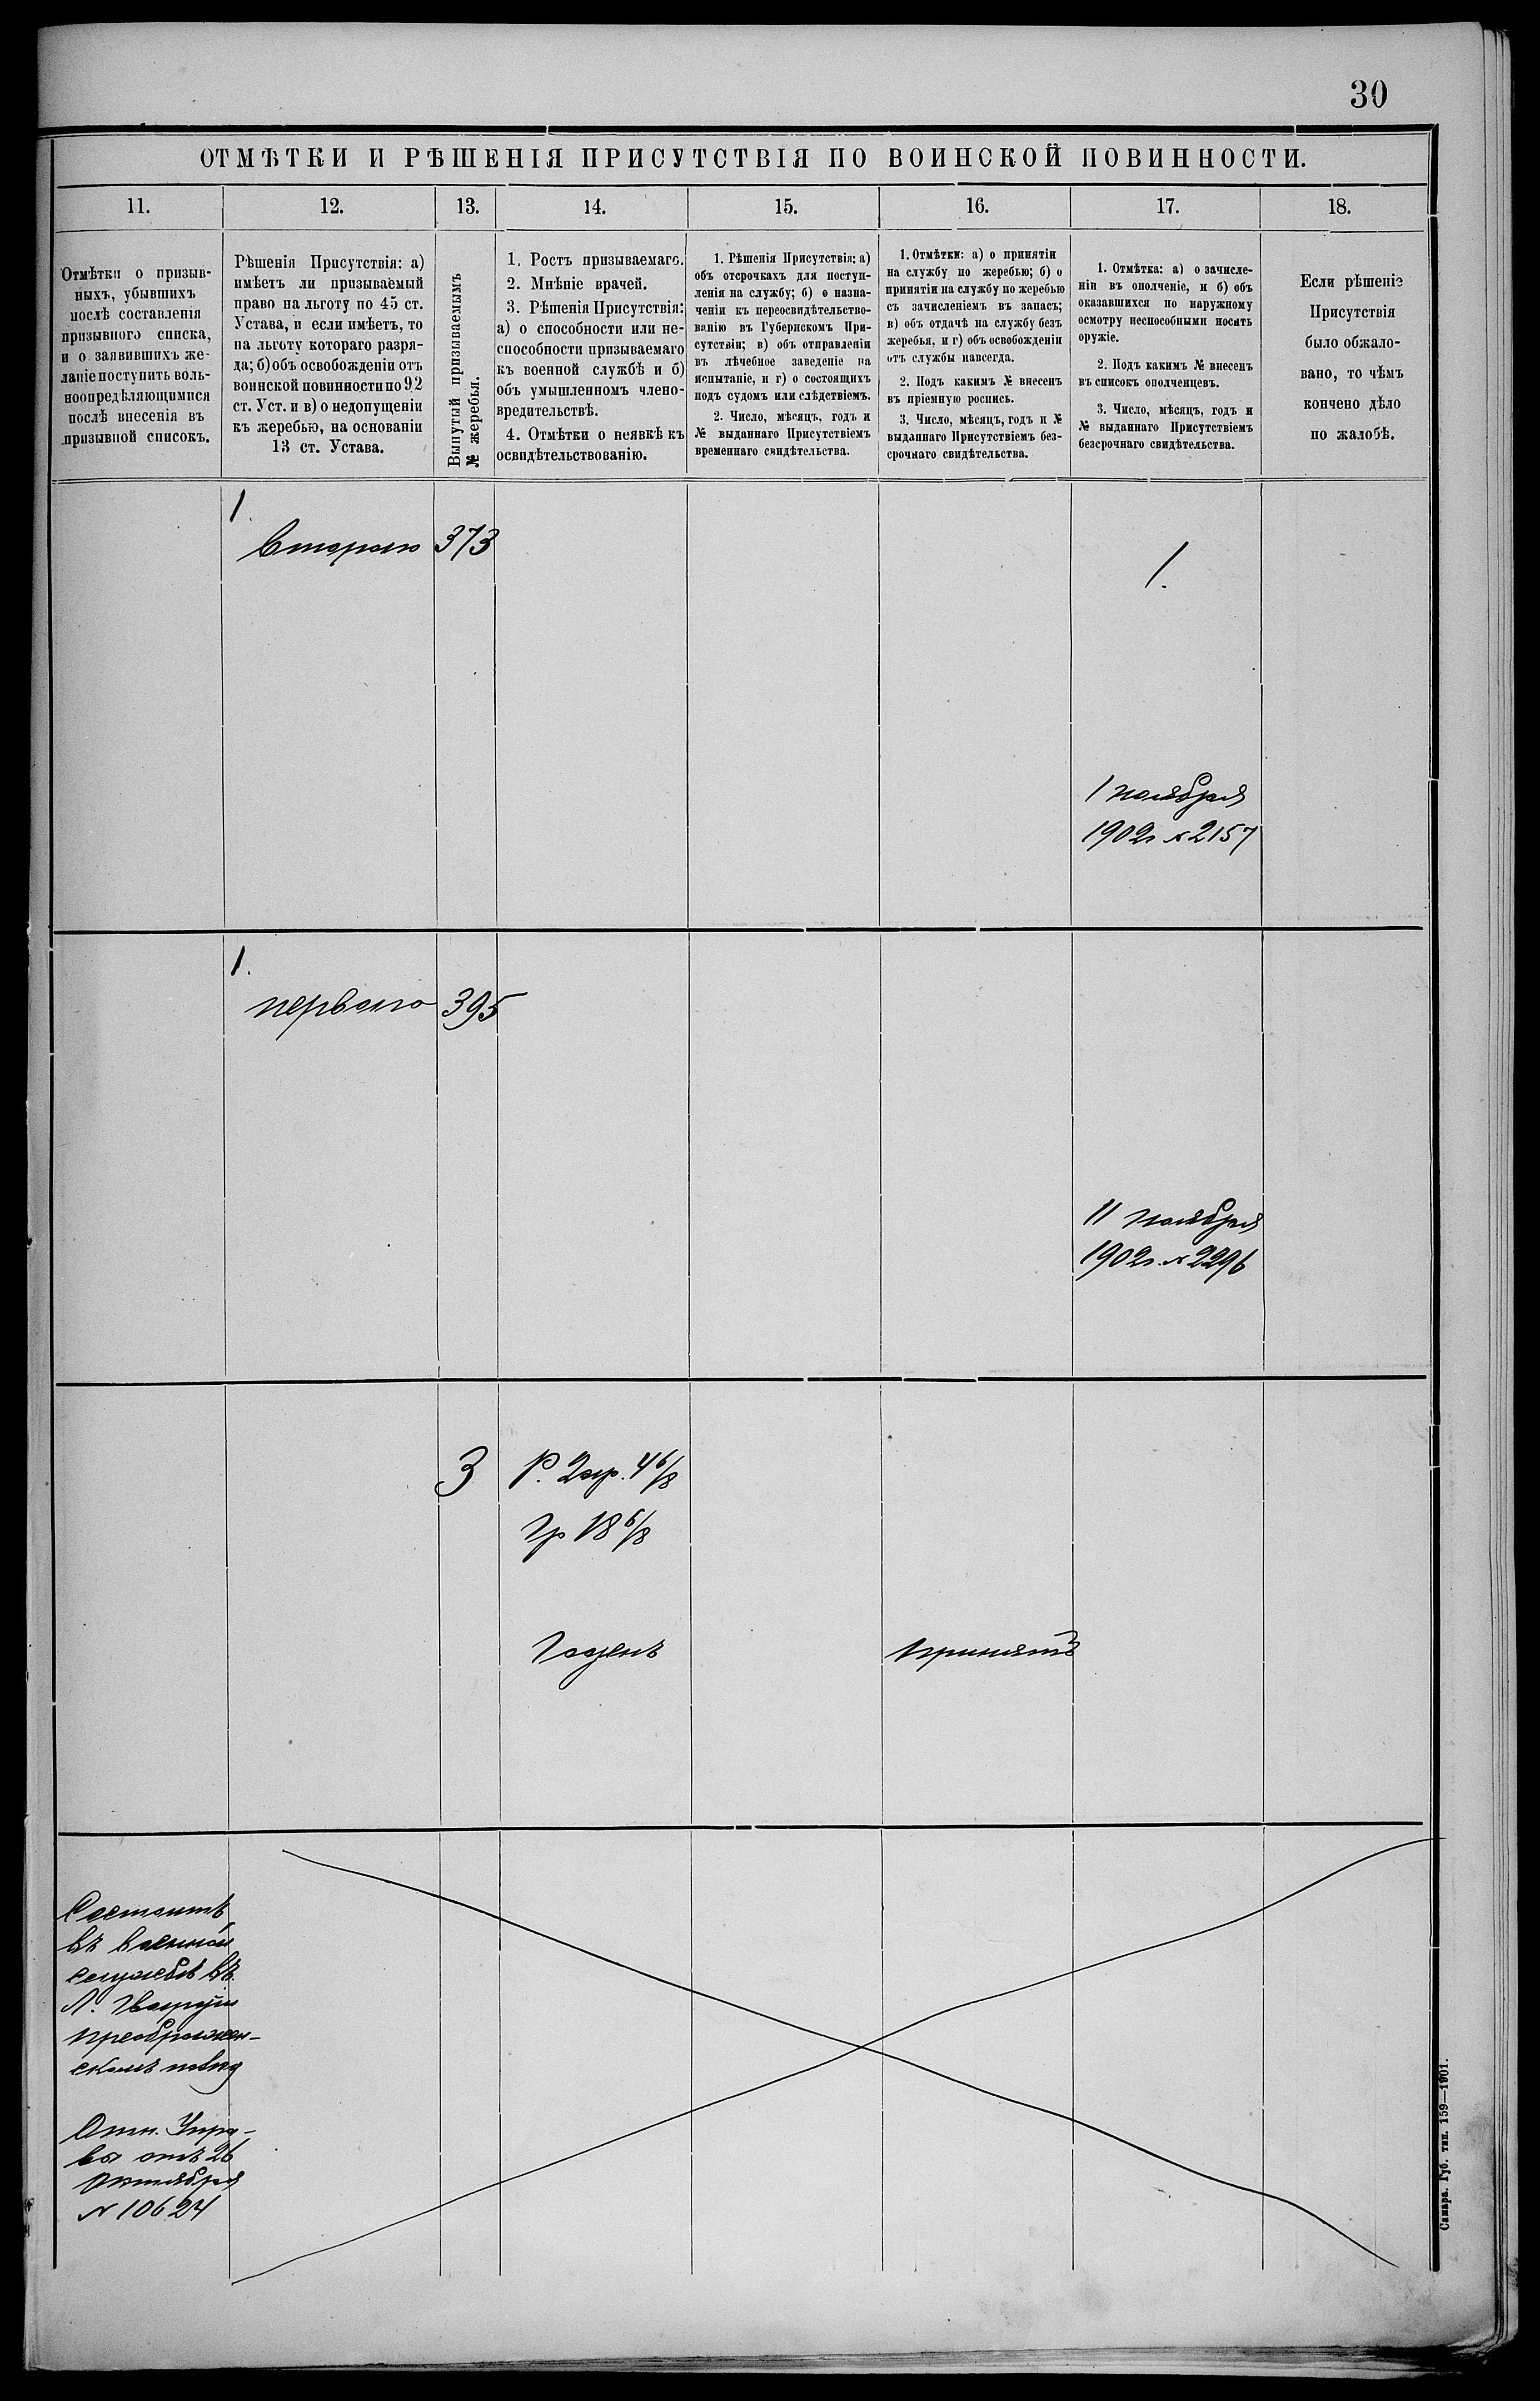 30
ОТМѢТКИ И РѢШЕНІЯ ПРИСУТСТВІЯ ПО ВОИНСКОЙ ПОВИННОСТИ.
11.
12.
13.
14.
15.
16.
17.
18.
Отмѣтки о призыв-
ныхъ, убывшихъ
послѣ составленія
призывного списка,
и о заявившихъ же-
ланіе поступить воль-
ноопредѣляющимися
послѣ внесенія въ
призывной списокъ.
Рѣшенія Присутствія: а)
имѣетъ ли призываемый
право на льготу по 45 ст.
Устава, и если имѣетъ, то
на льготу котораго разря-
да; б) объ освобожденіи отъ
воинской повинности по 92
ст. Уст. и в) о недопущеніи
къ жеребью, на основаніи
13 ст. Устава.
Вынутый призываемымъ
№ жеребья.
1. Ростъ призываемаго.
2. Мнѣніе врачей.
3. Рѣшенія Присутствія:
а) о способности или не-
способности призываемаго
къ военной службѣ и б)
объ умышленномъ члено-
вредительствѣ.
4. Отмѣтки о неявкѣ къ
освидѣтельствованію.
1. Рѣшенія Присутствія: а)
объ отсрочкахъ для поступ-
ленія на службу; б) о назна-
ченіи къ переосвидѣтельство-
ванію въ Губернскомъ При-
сутствіи; в) объ отправленіи
въ лѣчебное заведеніе на
испытаніе, и г) о состоящихъ
подъ судомъ или слѣдствіемъ.
2. Число, мѣсяцъ, годъ и
№ выданнаго Присутствіемъ
временнаго свидѣтельства.
1. Отмѣтки: а) о принятіи
на службу по жеребью; б) о
принятіи на службу по жеребью
съ зачисленіемъ въ запасъ;
в) объ отдачѣ на службу безъ
жеребья, и г) объ освобожденіи
отъ службы навсегда.
2. Подъ какимъ № внесенъ
въ пріемную роспись.
3. Число, мѣсяцъ, годъ и №
выданнаго Присутствіемъ без-
срочнаго свидѣтельства.
1. Отмѣтка: а) о зачисле-
ніи въ ополченіе, и б) объ
оказавшихся по наружному
осмотру неспособными носить
оружіе.
2. Подъ какимъ № внесенъ
въ списокъ ополченцевъ.
3. Число, мѣсяцъ, годъ и
№ выданнаго Присутствіемъ
безсрочнаго свидѣтельства.
Если рѣшеніе
Присутствія
было обжало-
вано, то чѣмъ
кончено дѣло
по жалобѣ.
1.
Второго 373
1.
1 ноября
1902г. № 2157
1.
первого 395
11 ноября
1902г. № 2296
3
Р. 2ар. 4 6/8
Гр 18 6/8
Годенъ
принятъ
Состоитъ
въ военной
службѣ въ
Л. Гвардіи
преображен-
скомъ полку
Отн. Упра-
вы отъ 26
Октября
№ 10624
Самара. Губ. тип. 159—1901.